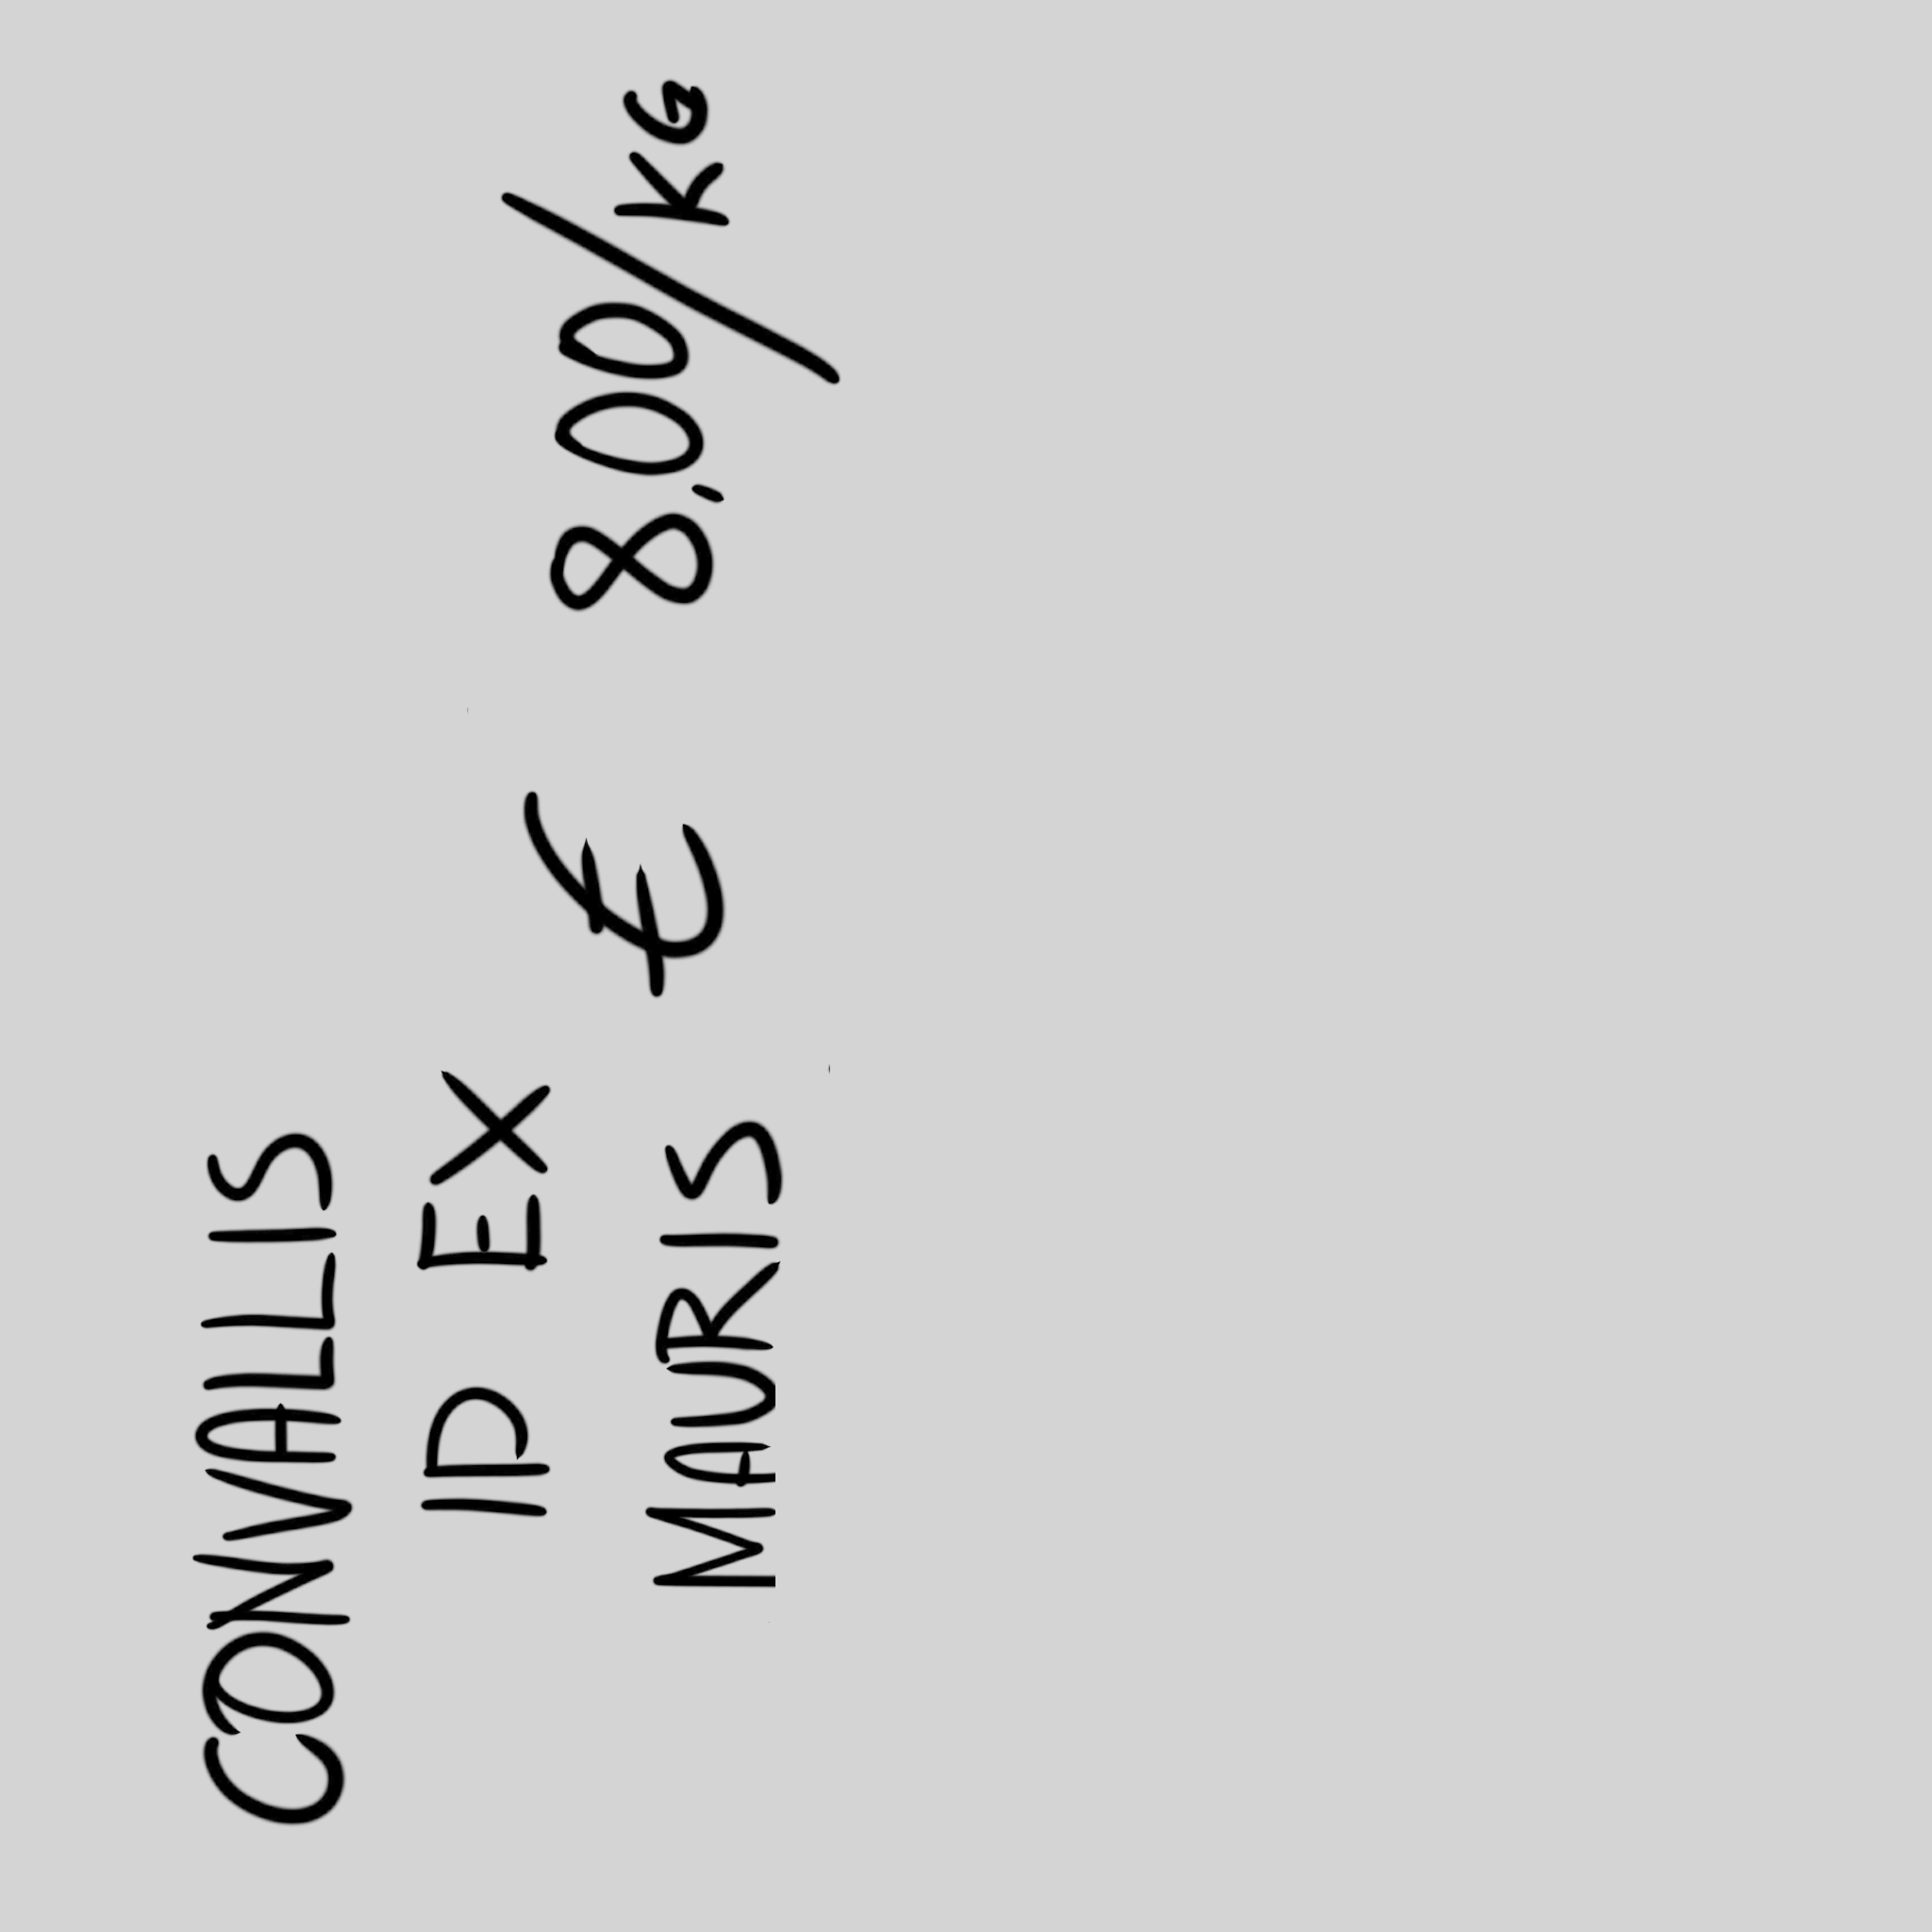 CONVALLIS
ID EX
MAURIS
€ 8,00/KG